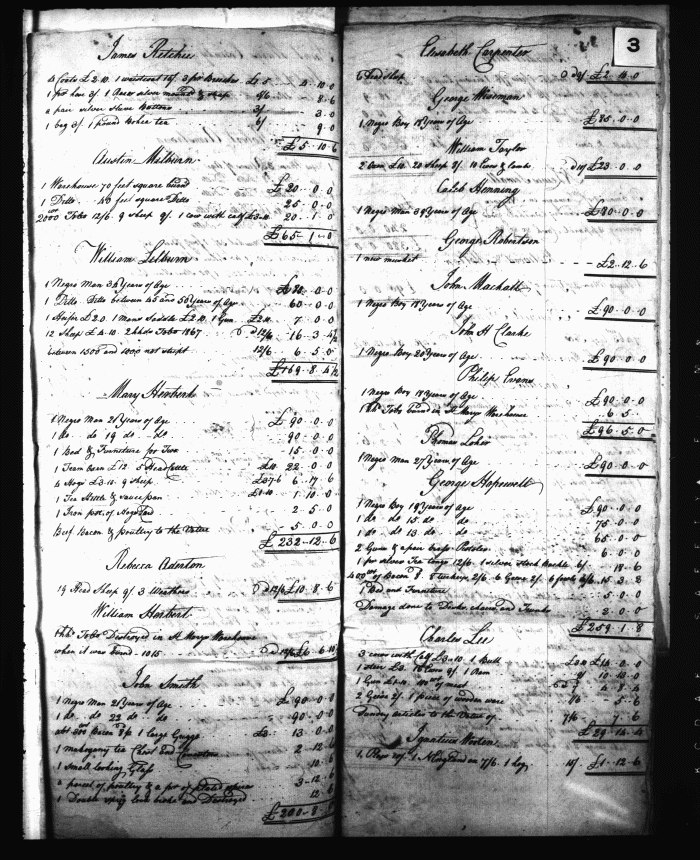 James Ritchie
4 Coats £2.10. 1 waistcoat 15/. 3 pr Breeches £1.5 4..10..0
1 pr hose 3/ 1 8..6
a pair silver sleve Buttons 3/ 3..0
1 bag 3/. 1 pound Bohea tea 6/ 9..0
£5..10..6
Austin Milburn
1 Warehouse 70 feet square burnd £20..0..0
1 Ditto 40 feet square Ditto 25..0..0
2000 Tobo 12/6. 9 sheep 9/. 1 cow with calf £3.10 20..1..0
£65..1..0
William Lilburn
1 Negro Man Years of Age
1 Ditto Ditto between 45 and 50 Years of Age 60..0..0
1 Heifer £2.0. 1 Mans Saddle £2.10. 1 Gun £2.10 7..0..0
12 Sheep £4.10. 2 hhds Tobo 1867 a 12/6 16..3..4½
between 1500 and 1000 not shipt 12/6 6..5..0
£169..8..4½
Mary Herbert
1 Negro Man 21 Years of Age £90..0..0
1 do do 19 do do 90..0..0
1 Bed & Furniture for Two 15..0..0
1 Team Oxen £12. 5 Head Cattle £10 22..0..0
4 Hogs £3.10. 9 sheep £3.7.6 6..17..6
1 Tea Kettle & saucepan £1.10 1..10..0
1 Iron pot, of Hogs Lard 2..5..0
Beef Bacon & poultry to the Value 5..0..0
£232..12..6
Rebecca Aderton
19 Head Sheep 9/. 3 Weathers a 12/6 £10..8..6
William Herbert
1 hhd Tobo Destroyed in St Marys Warehouse
when it was Burnd - 1015 a 12/6 £6..6..10
John Smith
1 Negro Man 21 Years of Age £90..0..0
1 do do 22 do do 90..0..0
Bacon 8/. 1 large 13..0..0
1 mahogany tea Chest and 2..12..6
1 small looking Glass 10..6
a parcel of poultry & a pr of 3..12..6
1 Double and Destroyed 12..6
£200..8..0
3
Elizabeth Carpenter
6 Head sheep a 9/. £2..14..0
George Wiseman
1 Negro Boy 18 Years of Age £85..0..0
William Taylor
2 Oxen £10. 20 Sheep 9/. 10 Ewes & lambs £23..0..0
Caleb Henning
1 Negro Man 39 Years of Age £80..0..0
George Robertson
1 new musket £2..12..6
John Mackall
1 Negro Boy 18 Years of Age £90..0..0
John H Clarke
1 Negro Boy 20 Years of Age £90..0..0
Philip Evans
1 Negro Boy 18 Years of Age £90..0..0
1 hhd Tobo burnd in St Marys Warehouse 6..5
£96..5..0
Thomas Loker
1 Negro Man 27 Years of Age £90..0..0
George Hopewell
1 Negro Boy 19 Years of Age £90..0..0
1 do do 15 do do 75..0..0
1 do do 13 do do 65..0..0
2 Guns & a pair brass Pistoles 6..0..0
1 pr silver Tea tongs 12/6. 1 silver Stock Buckle 6/. 18..6
400 of Bacon 8. 8 turkeys 2/6. 6 Geese 2/. 15..3..2
1 Bed and Furniture 5..0..0
Damage done to Desks chairs and Trunks 2..0..0
£259..1..8
Charles Lee
3 cows with Calf £3.10. 1 Bull £14..0..0
1 steer £3. Ewes 9/. 1 Ram 10..10..0
1 Gun £1.10. of meat 4..8..4
2 Geese 2/. 1 piece of wooden ware 5..6
Sundry articles to the Value of 7/6 7..6
£29..14..4
Ignatius Wooten
15/ £1..12..6